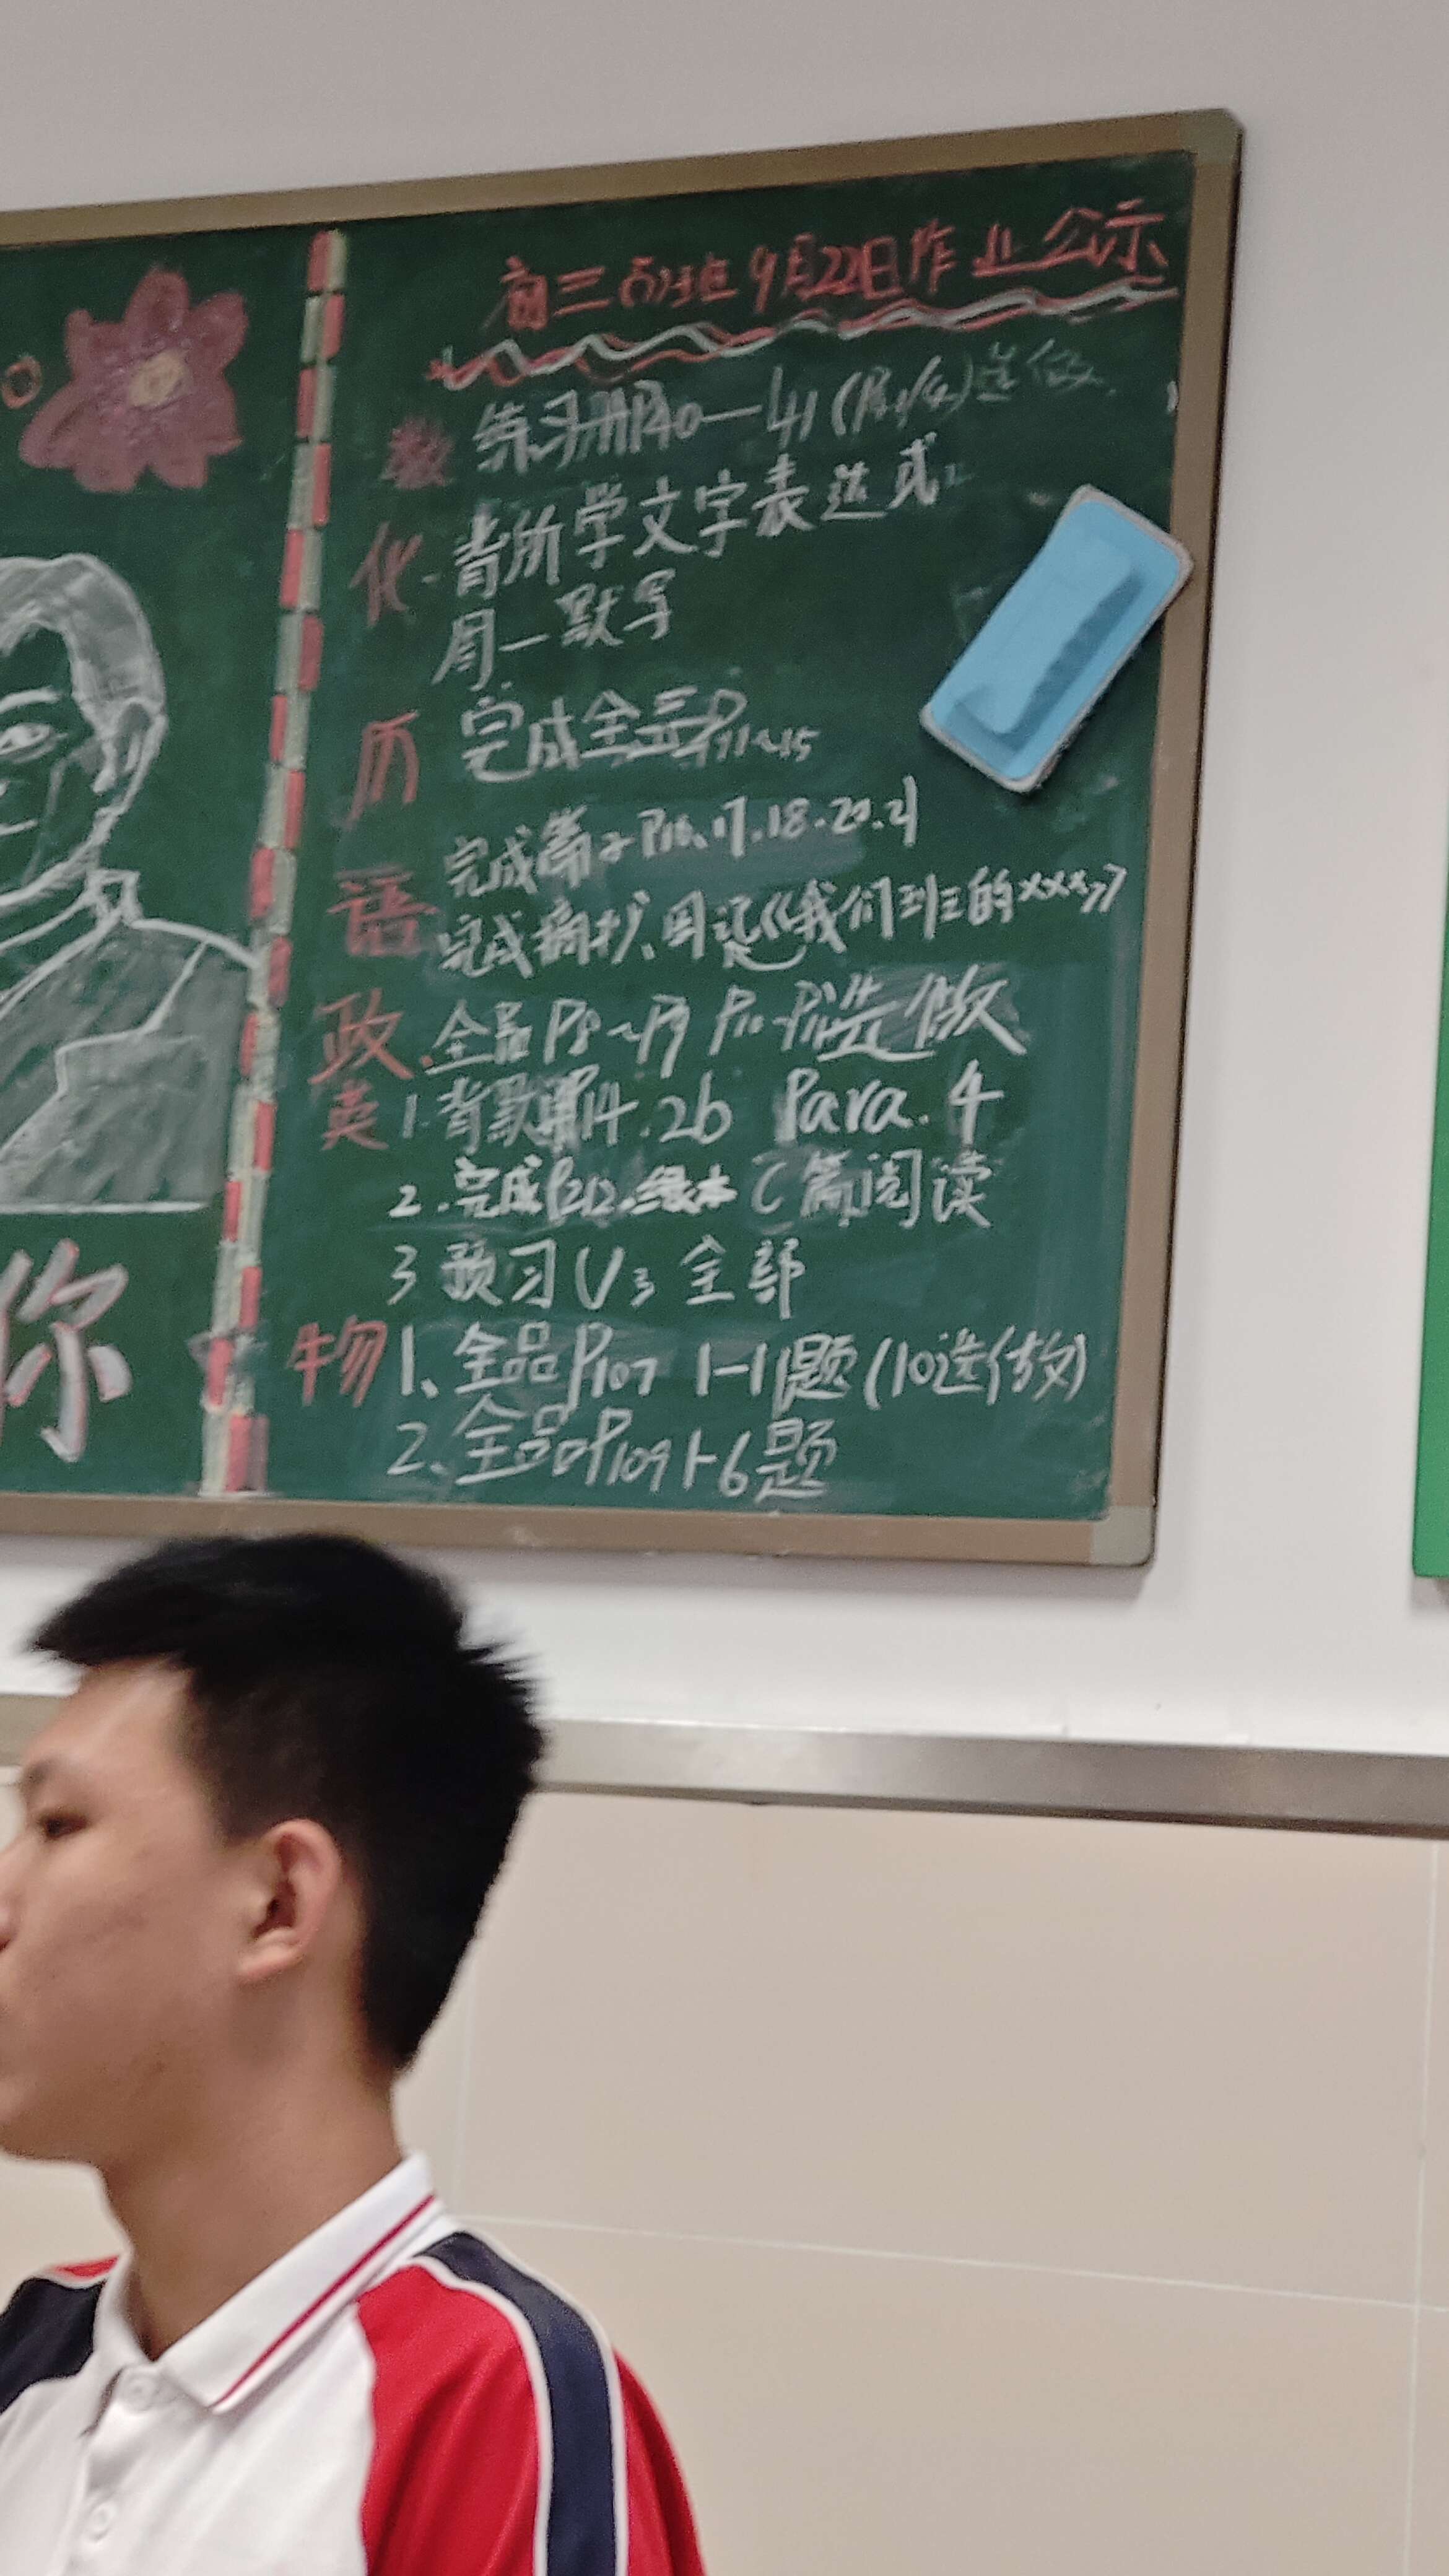 9月22日作业公示
数 练习册P40—41 选做
化 背所学文字表达式
周一默写
历 完成全品P11~15
语 完成 P16、17.18.20.21
完成摘抄、周记《我们班的×××》
政 全品P8~P9 选做
英 1.背默 P14.2b Para.4
2.完成 绿本C篇阅读
3 预习U3全部
物 1、全品P107 1-11题(10选做)
2、全品P109 1-6题
你